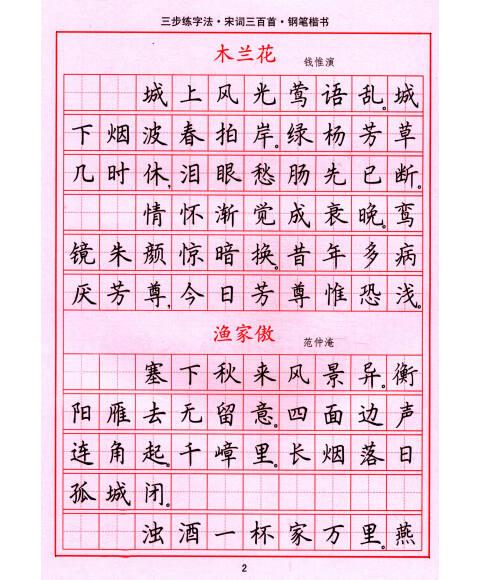 三步练字法·宋词三百首·钢笔楷书
木兰花 钱惟演
城上风光莺语乱。城
下烟波春拍岸。绿杨芳草
几时休,泪眼愁肠先已断。
情怀渐觉成衰晚。鸾
镜朱颜惊暗换。昔年多病
厌芳尊,今日芳尊惟恐浅。
渔家傲 范仲淹
塞下秋来风景异。衡
阳雁去无留意。四面边声
连角起。千嶂里。长烟落日
孤城闭。
浊酒一杯家万里。燕
2